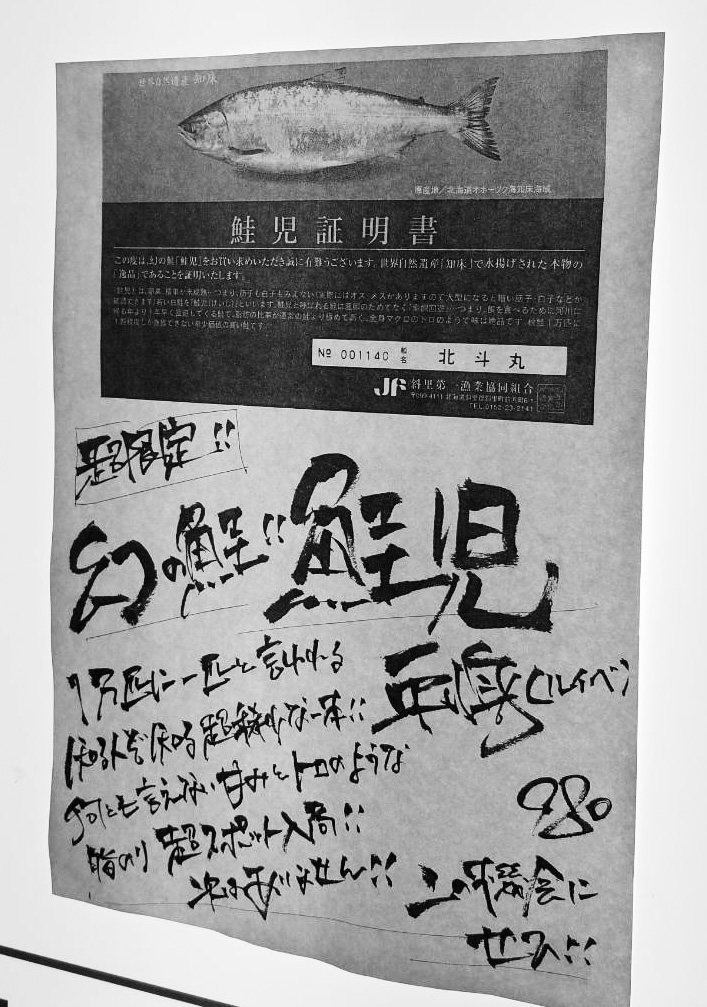 世界自然遺産 知床
原産地／北海道オホーツク海知床海域
鮭児証明書
この度は、幻の鮭「鮭児」をお買い求めいただき誠に有難うございます。世界自然遺産「知床」で水揚げされた本物の
「逸品」であることを証明いたします。
№ 001140 船名 北斗丸
JF 斜里第一漁業協同組合
〒099-4111 北海道斜里郡斜里町前浜町6-1
TEL.0152-23-2141
超限定!!
幻の鮭!! 鮭児
刺身(ルイベ)
980
1万匹に一匹と言われる
知る人ぞ知る超稀少な一本!!
何とも言えない甘みとトロのような
脂のり 超スポット入荷!!
次はありません!!
この機会に
ぜひ!!